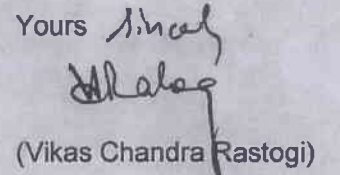 Yours Sincerely
(Vikas Chandra Rastogi)